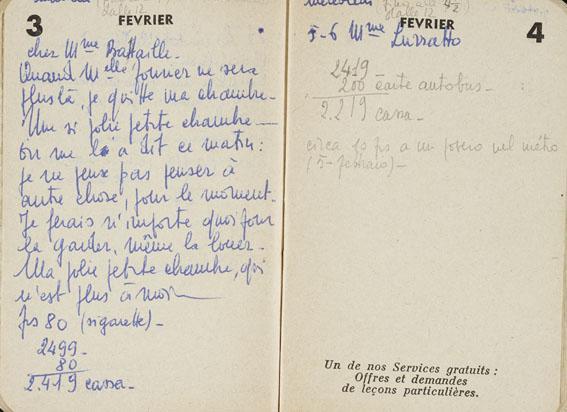 3
FEVRIER
chez Mme Battaille.
Quand Melle fournier ne sera
plus là, je quitte ma chambre.
Une si jolie petite chambre —
On me l'a dit ce matin:
je ne peux pas penser à
autre chose, pour le moment.
Je ferais n'importe quoi pour
la garder, même la louer.
Ma jolie petite chambre, qui
n'est plus à moi —
frs 80 (sigarette) -
2499 -
80
2.419 cassa -
FEVRIER
4
5-6 Mme Luzzatto
2419
200 carte autobus -
2.219 cassa -
circa 50 frs a un povero nel métro
(5 - febbraio) -
Un de nos Services gratuits :
Offres et demandes
de leçons particulières.